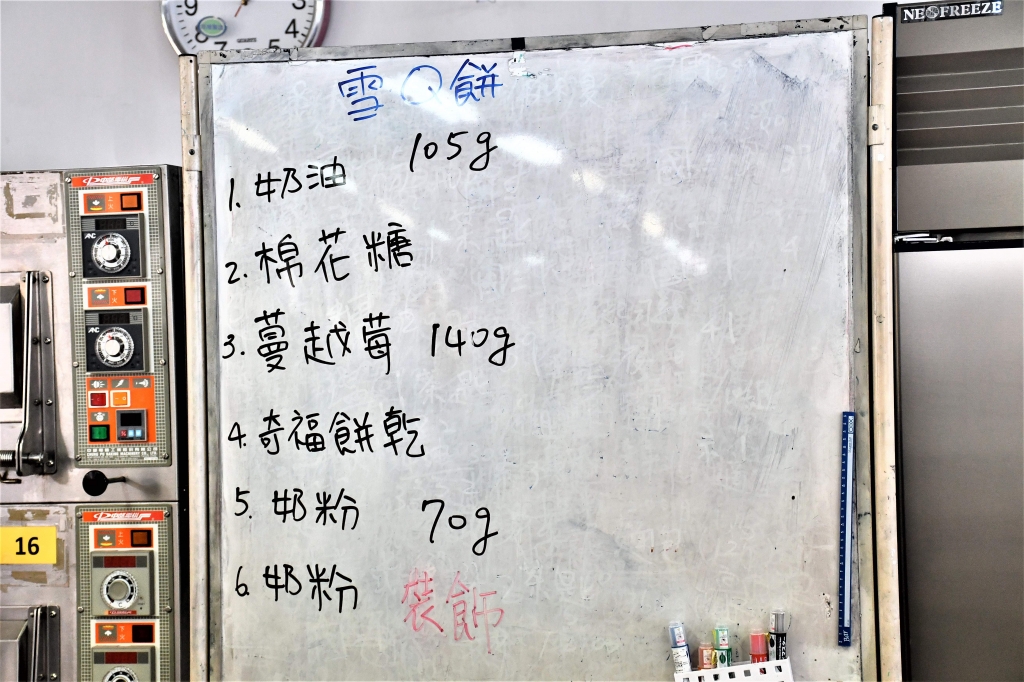 NEOFREEZE
雪Q餅
1. 奶油 105g
2. 棉花糖
3. 蔓越莓 140g
4. 奇福餅乾
5. 奶粉 70g
6. 奶粉 裝飾
16
9 8 7 5 4 3